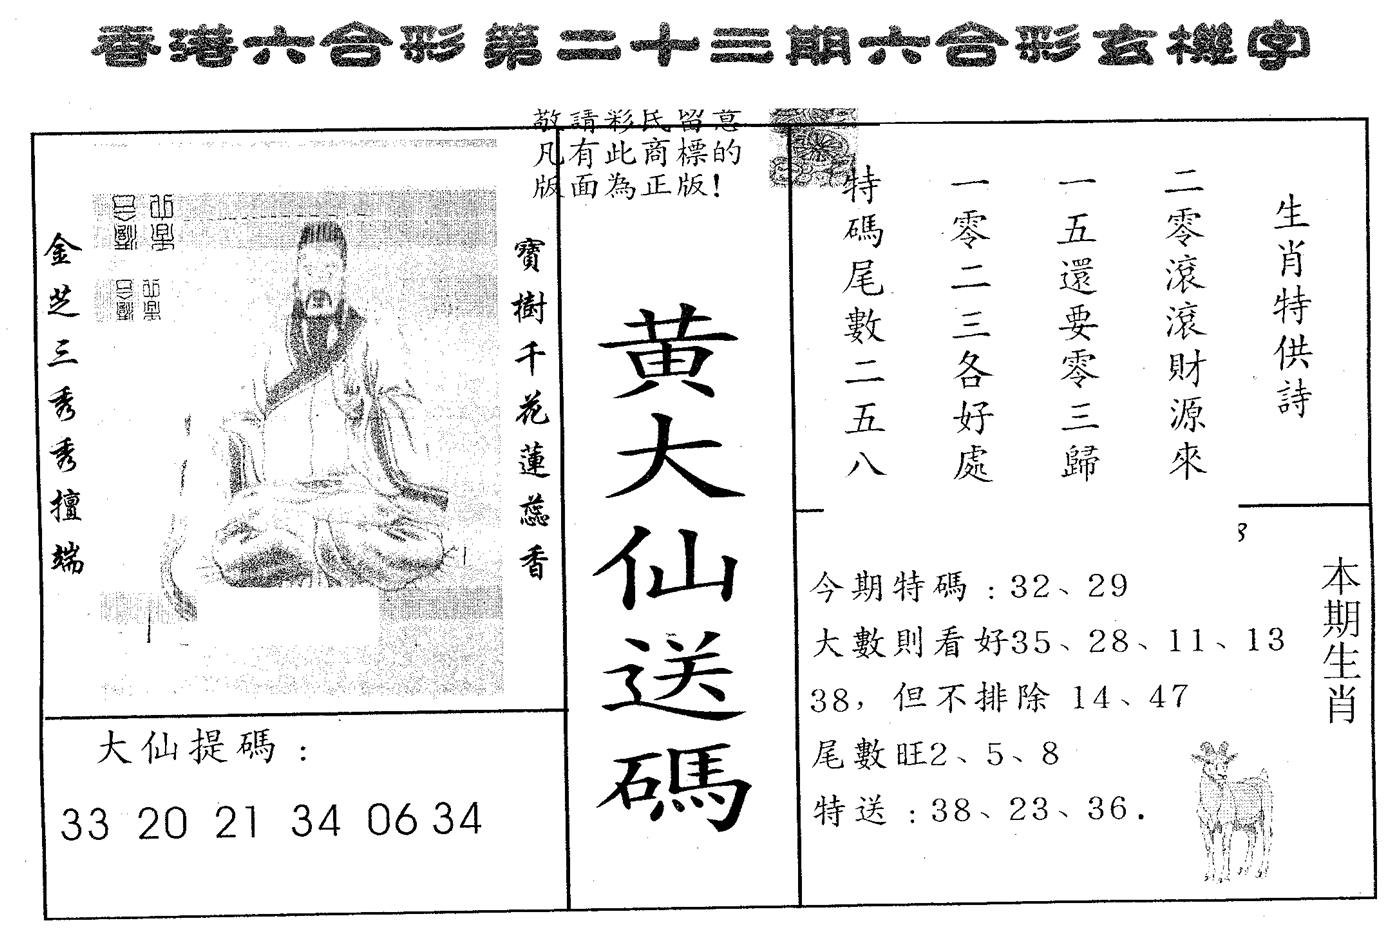 香港六合彩第二十三期六合彩玄機字
敬請彩民留意
凡有此商標的
版面為正版!
金芝三秀秀擅端
寶樹千花蓮蕊香
黄大仙送碼
生肖特供詩
二零滾滾財源來
一五還要零三歸
一零二三各好處
特碼尾數二五八
本期生肖
今期特碼:32、29
大數則看好35、28、11、13
38,但不排除 14、47
尾數旺2、5、8
特送:38、23、36.
大仙提碼:
33 20 21 34 06 34